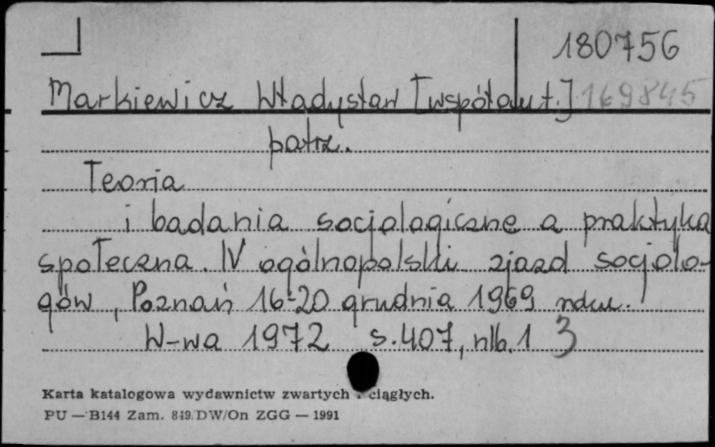 180756
Markiewicz Władysław [współaut.] 169845
patrz.
Teoria
i badania socjologiczne a praktyka
społeczna. IV ogólnopolski zjazd socjolo-
gów, Poznań 16-20 grudnia 1969 roku.
W-wa 1972 s.407, nlb.1 3
Karta katalogowa wydawnictw zwartych i ciągłych.
PU — B144 Zam. 849/DW/On ZGG — 1991